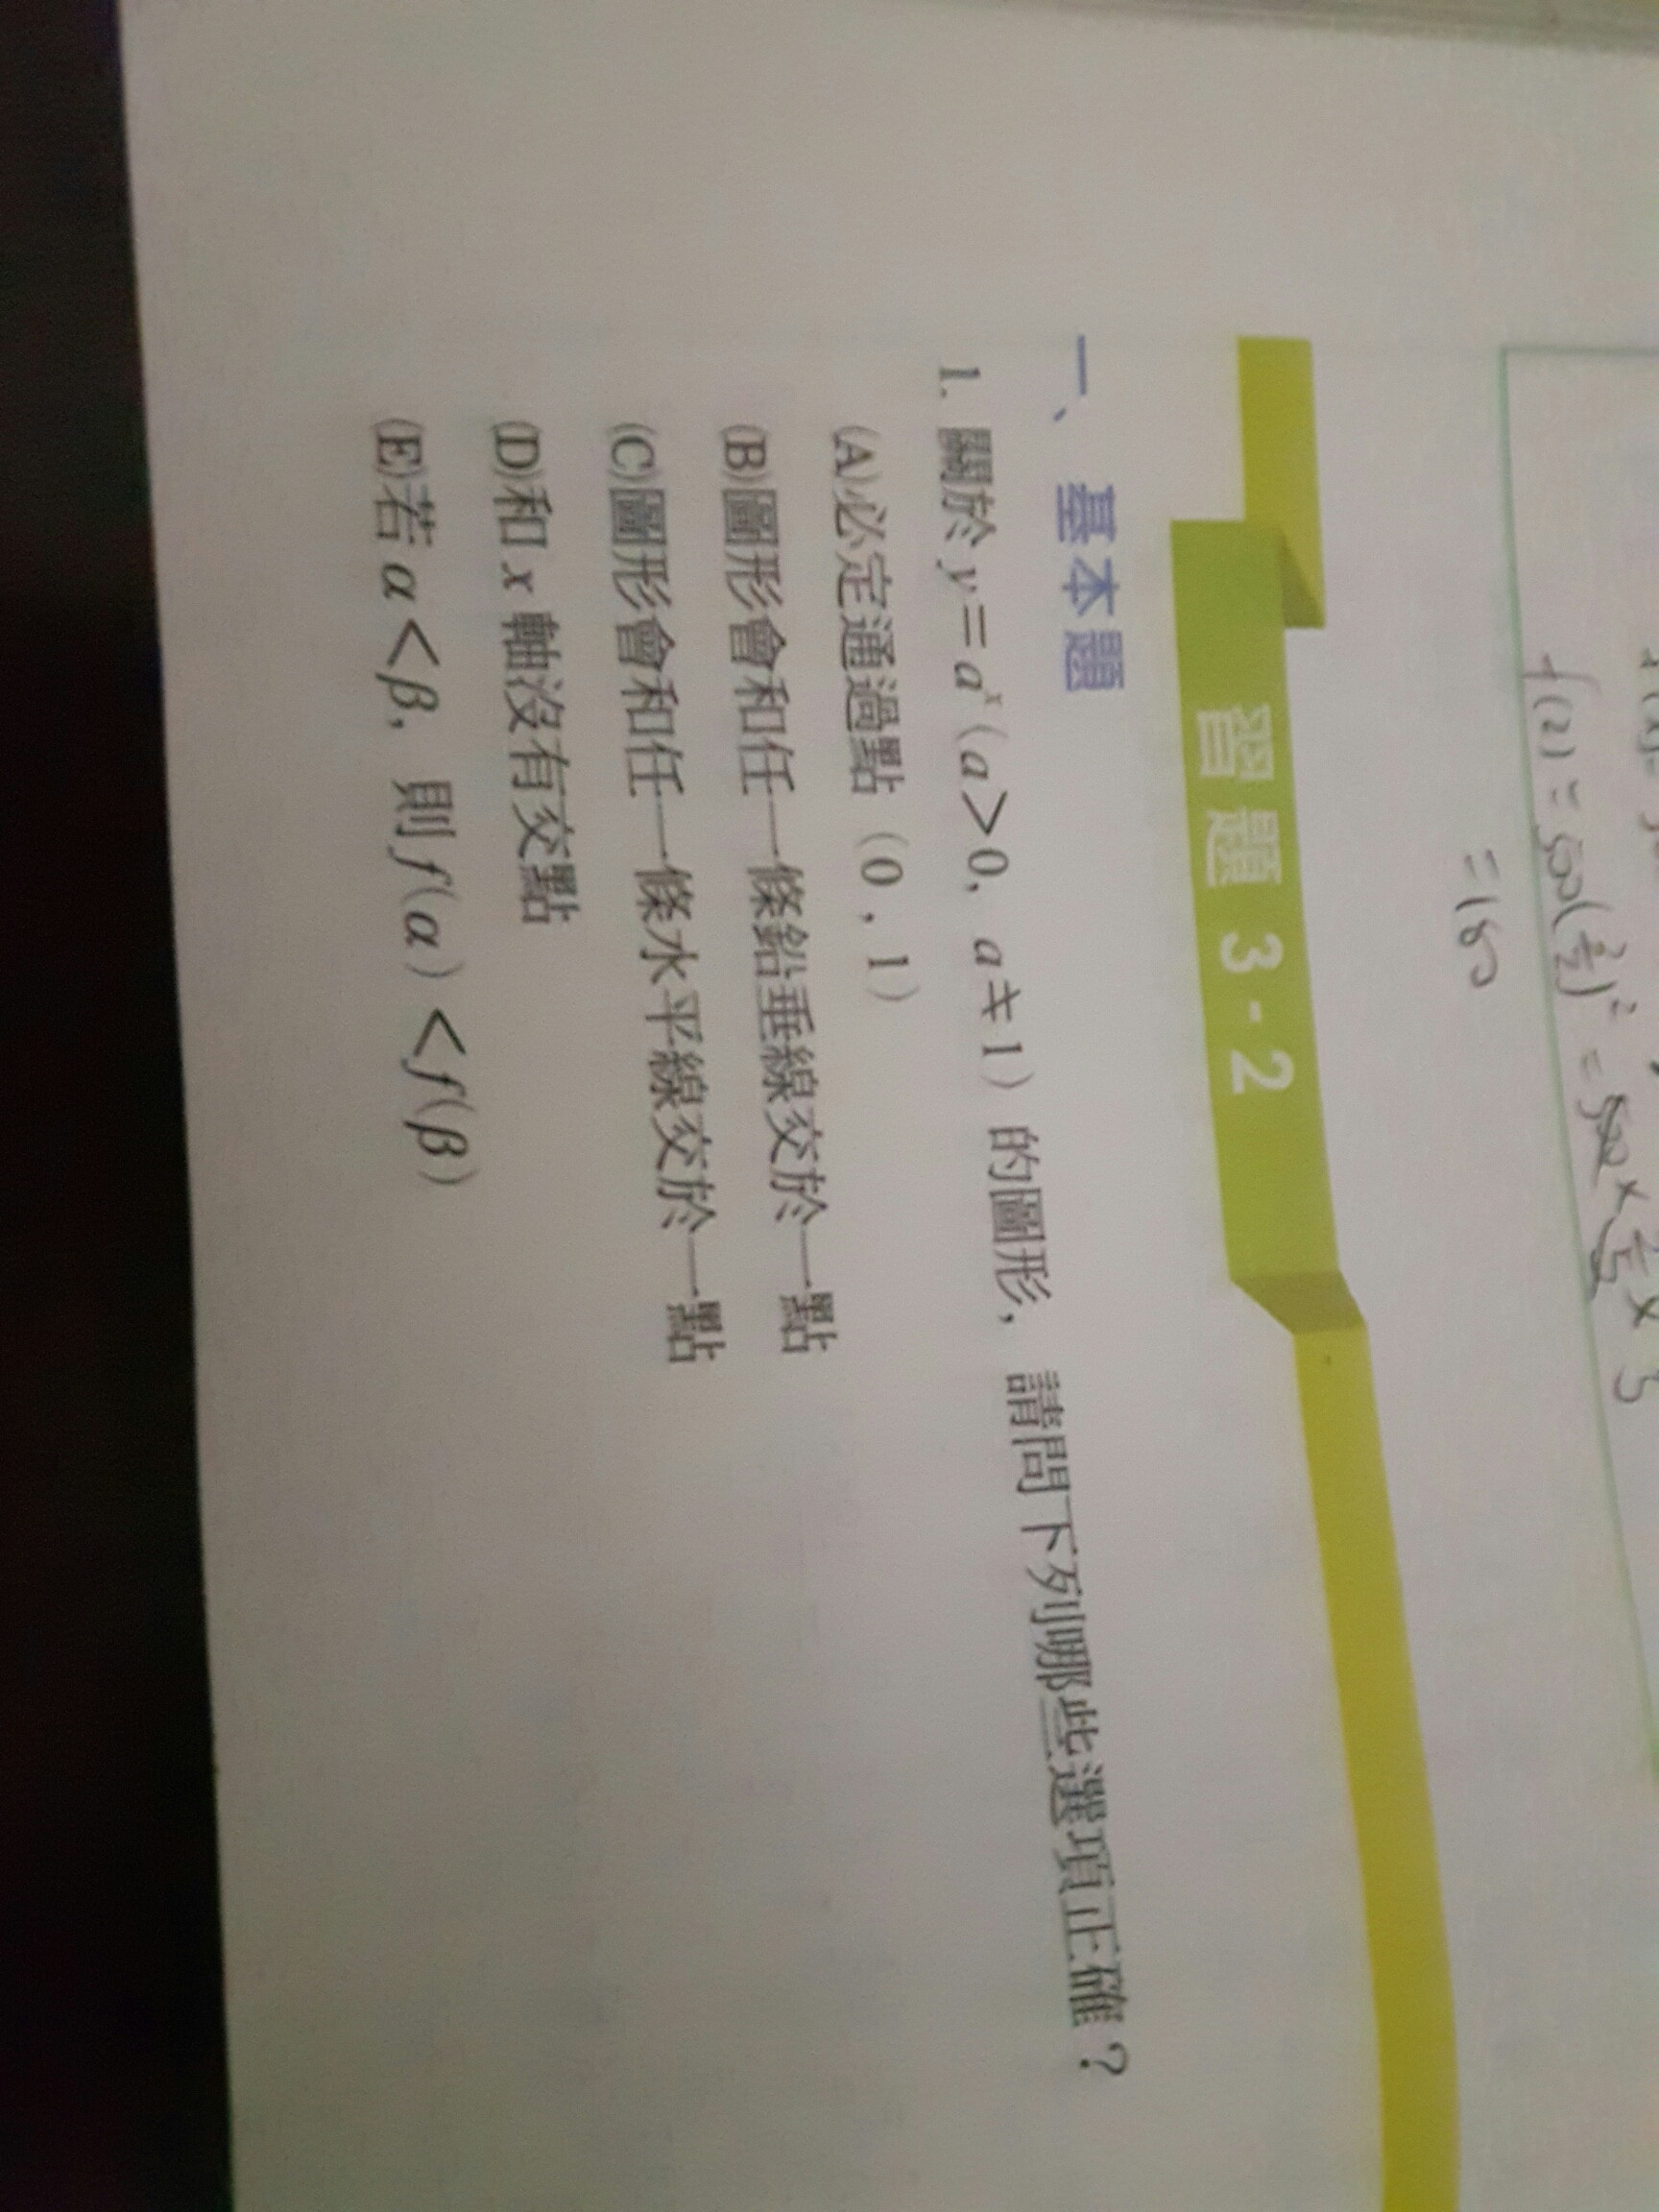 f(2) = 500(
=180
習題 3-2
一、基本題
1. 關於 y=aˣ (a>0, a≠1) 的圖形，請問下列哪些選項正確？
(A)必定通過點 (0, 1)
(B)圖形會和任一條鉛垂線交於一點
(C)圖形會和任一條水平線交於一點
(D)和 x 軸沒有交點
(E)若 α<β, 則 f(α)<f(β)